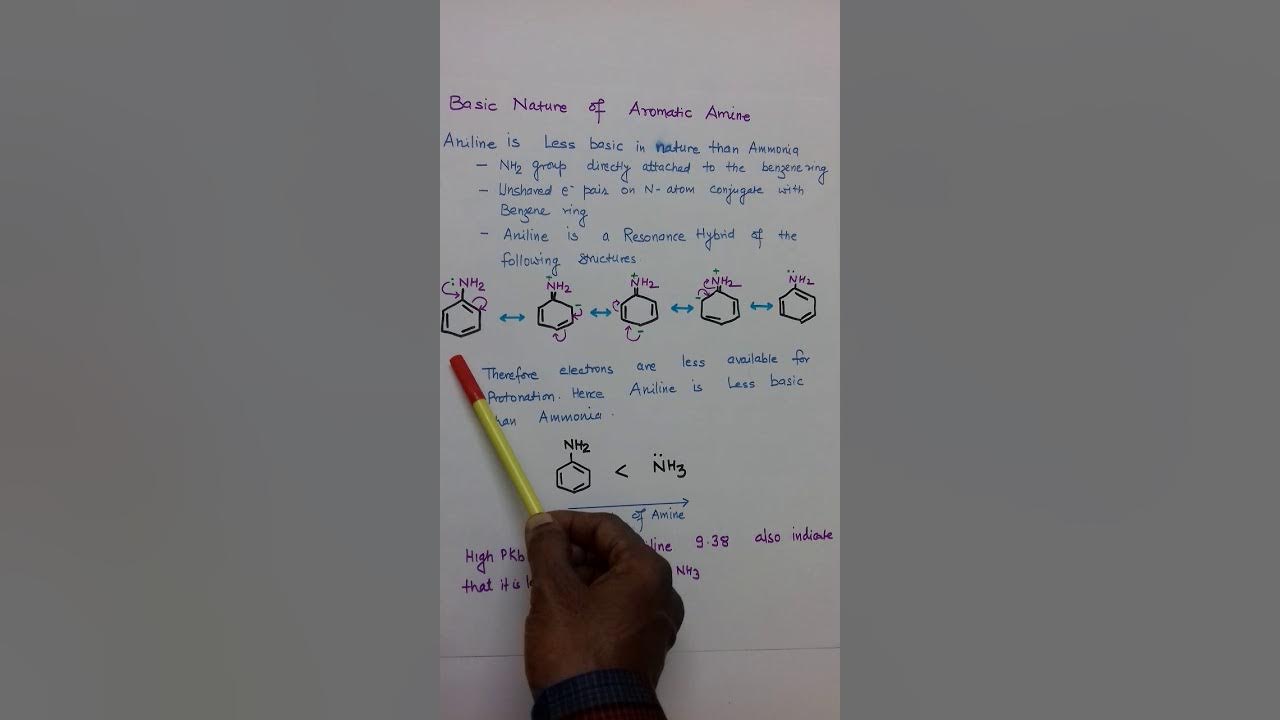 Basic Nature of Aromatic Amine
Aniline is Less basic in nature than Ammonia
- NH2 group directly attached to the benzene ring
- Unshared e- pair on N-atom conjugate with
Benzene ring
- Aniline is a Resonance Hybrid of the
following structures
:NH2 +NH2 +NH2 +NH2 :NH2
Therefore electrons are less available for
Protonation. Hence Aniline is Less basic
Ammonia.
NH2
< :NH3
of Amine
High PKb 9.38 also indicate
that it is NH3